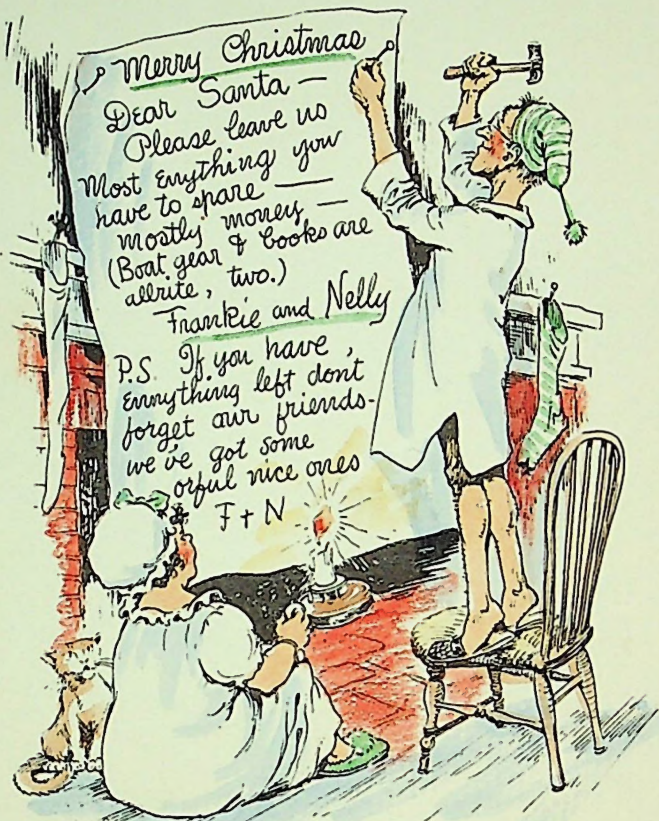 Merry Christmas
Dear Santa —
Please leave us
Most Enything you
have to spare —
mostly money —
(Boat gear & books are
allrite, two.)
Frankie and Nelly
P.S. If you have,
Ennything left dont
forget our friends-
we've got some
orful nice ones
F + N